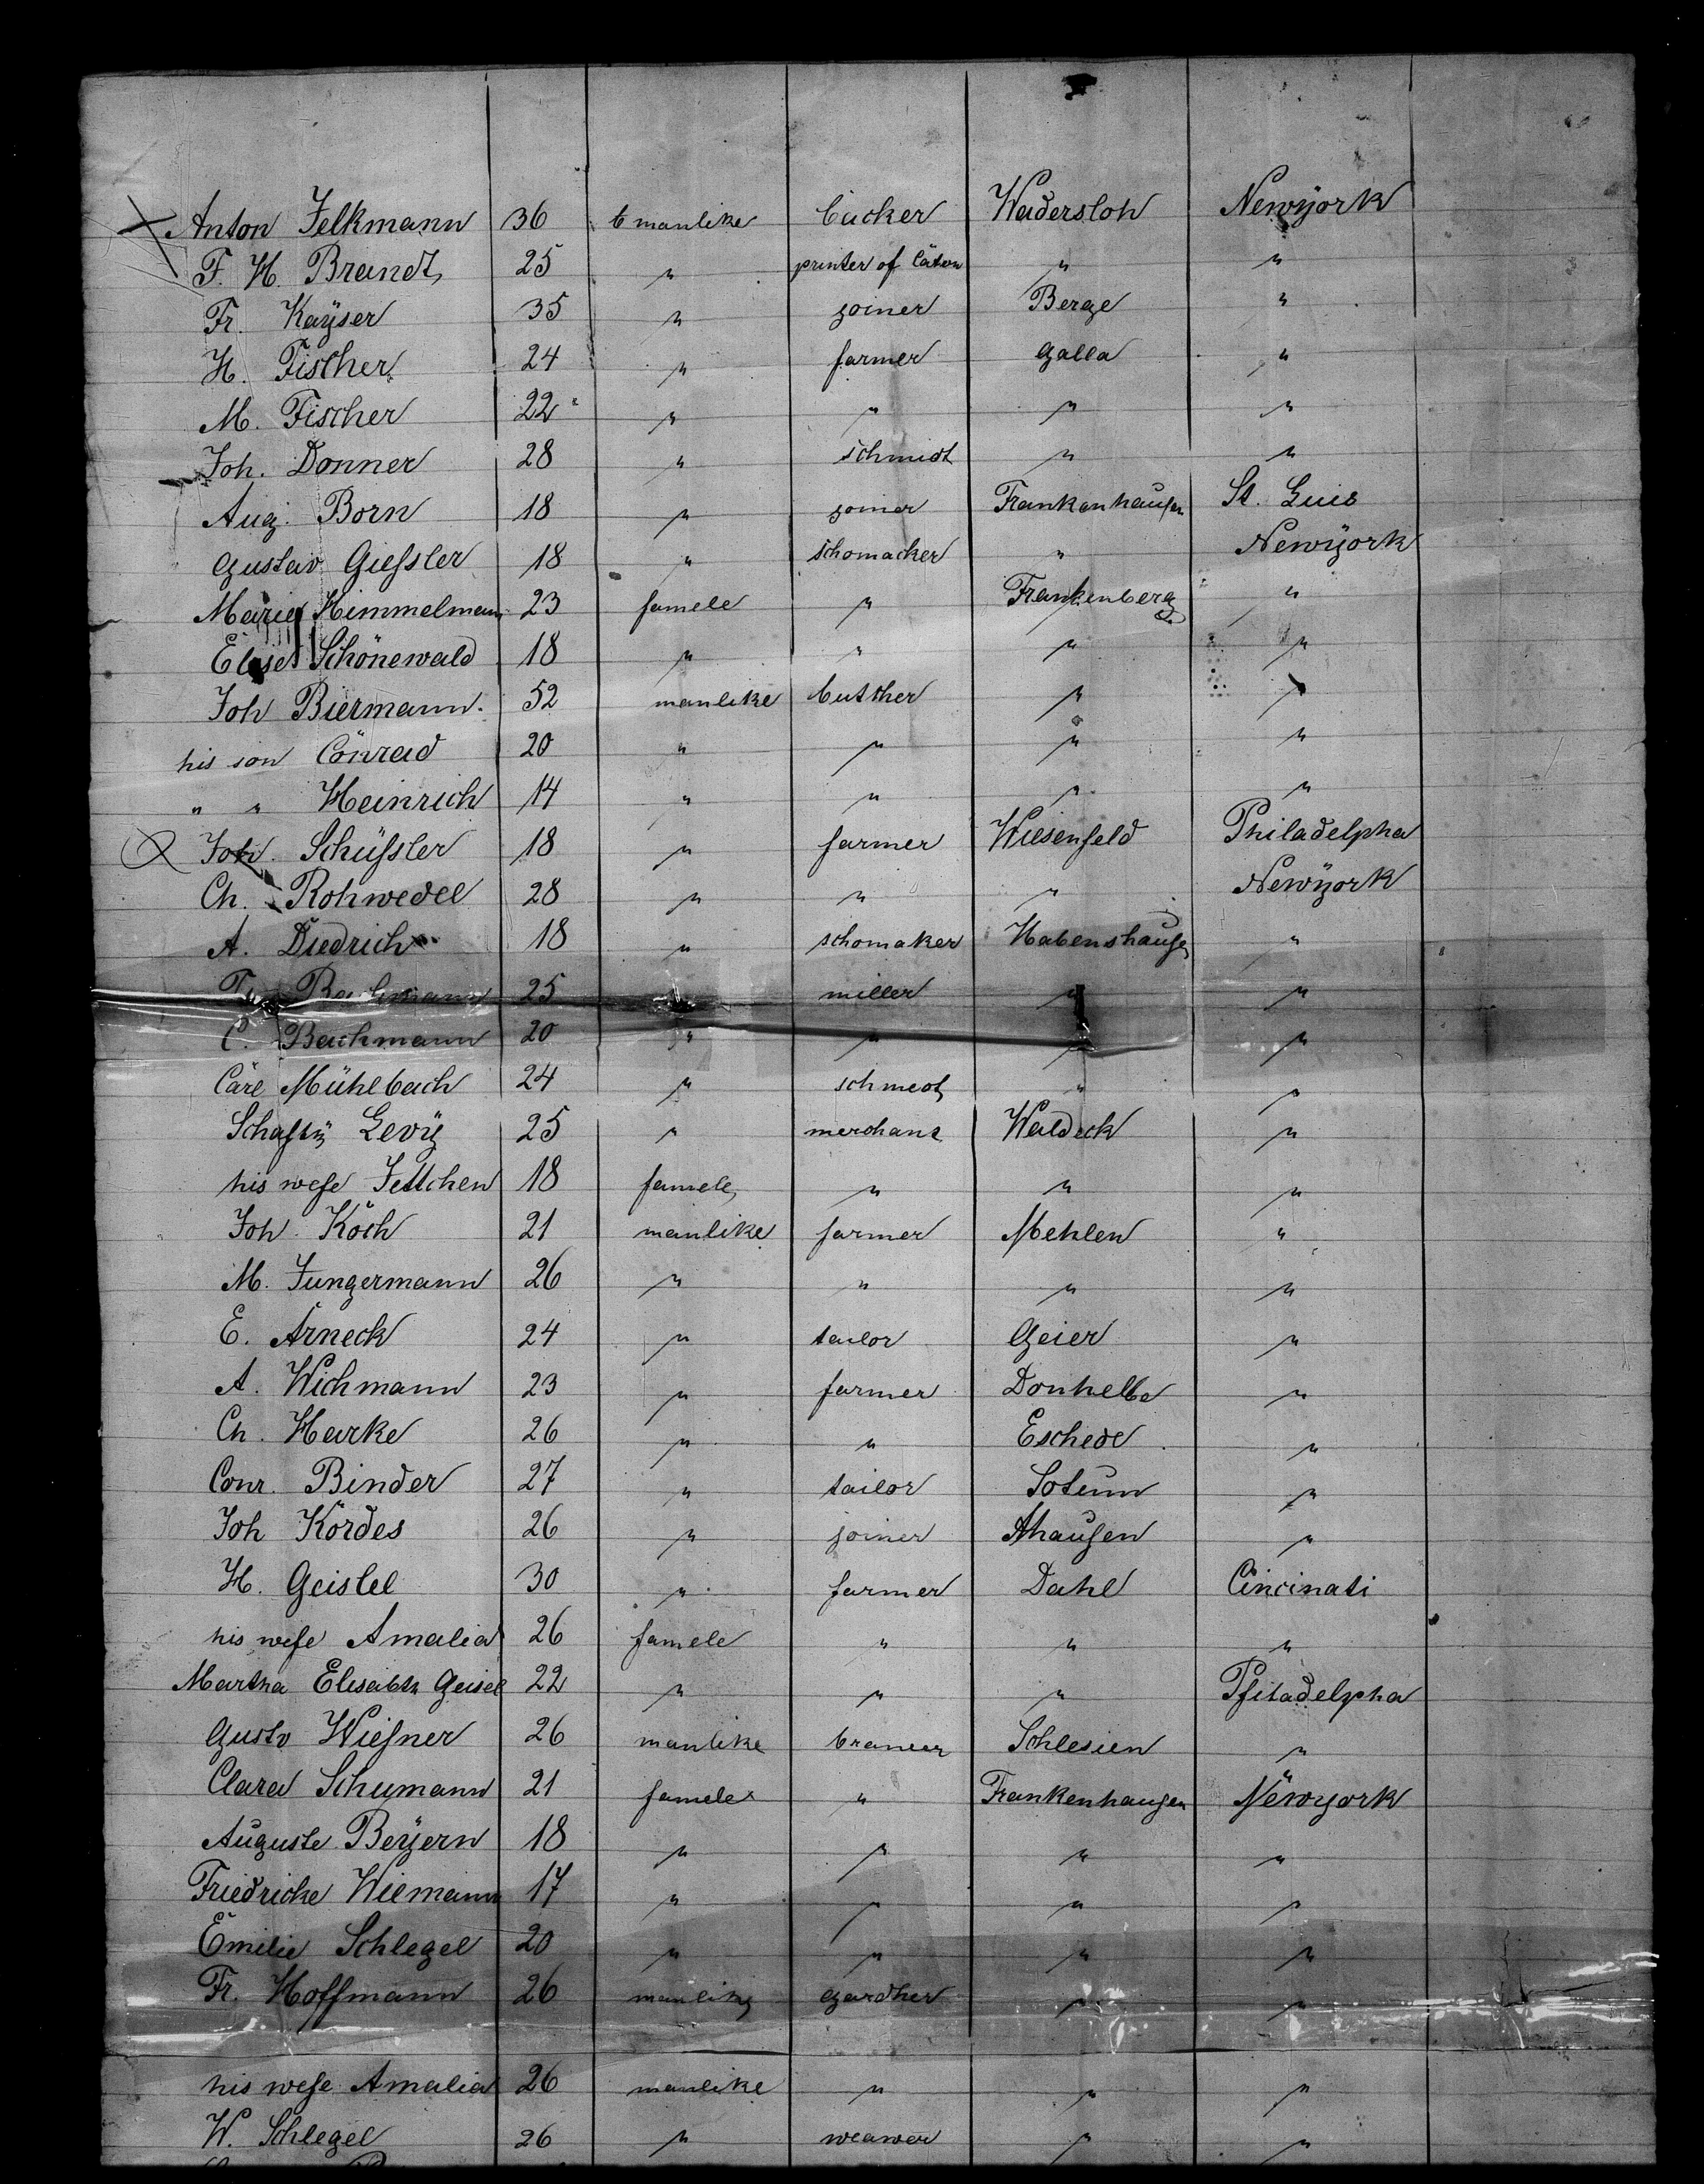 Anton Felkmann 36 manlike Wadersloh Newÿork
F. H. Brandt 25 " printer of " "
Fr. Kaÿser 35 " joiner Berge "
H. Fischer 24 " farmer Galla "
M. Fischer 22 " " " "
Joh. Donner 28 " schmidt " "
Aug. Born 18 " joiner Frankenhausen St. Luis
Gustav Gießler 18 " schomacker " Newÿork
Marie Himmelmann 23 famele " Frankenberg "
Elise Schönewald 18 " " " "
Joh Biermann. 52 manlike butcher " "
his son Conrad 20 " " " "
" " Heinrich 14 " " " "
Joh. Schüßler 18 " farmer Wiesenfeld Philadelpha
Ch. Rohwedel 28 " " " Newÿork
A. Diedrich 18 " schomaker Habenshausen "
Bachmann 25 " miller " "
C. Bachmann 20 " " " "
Carl Mühlbach 24 " schmedt " "
Levÿ 25 " merchant Waldeck "
his wefe Jettchen 18 famele " " "
Joh. Koch 21 manlike farmer Mehlen "
M. Jungermann 26 " " " "
E. Arneck 24 " tailor Geier "
A. Wichmann 23 " farmer Donhelbe "
Ch. Harke 26 " " Eschede "
Conr. Binder 27 " tailor "
Joh Kordes 26 " joiner Ahausen "
H. Geistel 30 " farmer Dahl Cincinati
his wefe Amalia 26 famele " " "
Martha Elisabth Geisel 22 " " " Pfiladelpha
Gustv Wießner 26 manlike Schlesien "
Clara Schumann 21 famele " Frankenhausen Newyork
Auguste Beÿern 18 " " " "
Friedricke Wiemann 17 " " " "
Emilie Schlegel 20 " " " "
Fr. Hoffmann 26 manlike gardher " "
his wefe Amalia 26 manlike " " "
W. Schlegel 26 " weawer " "